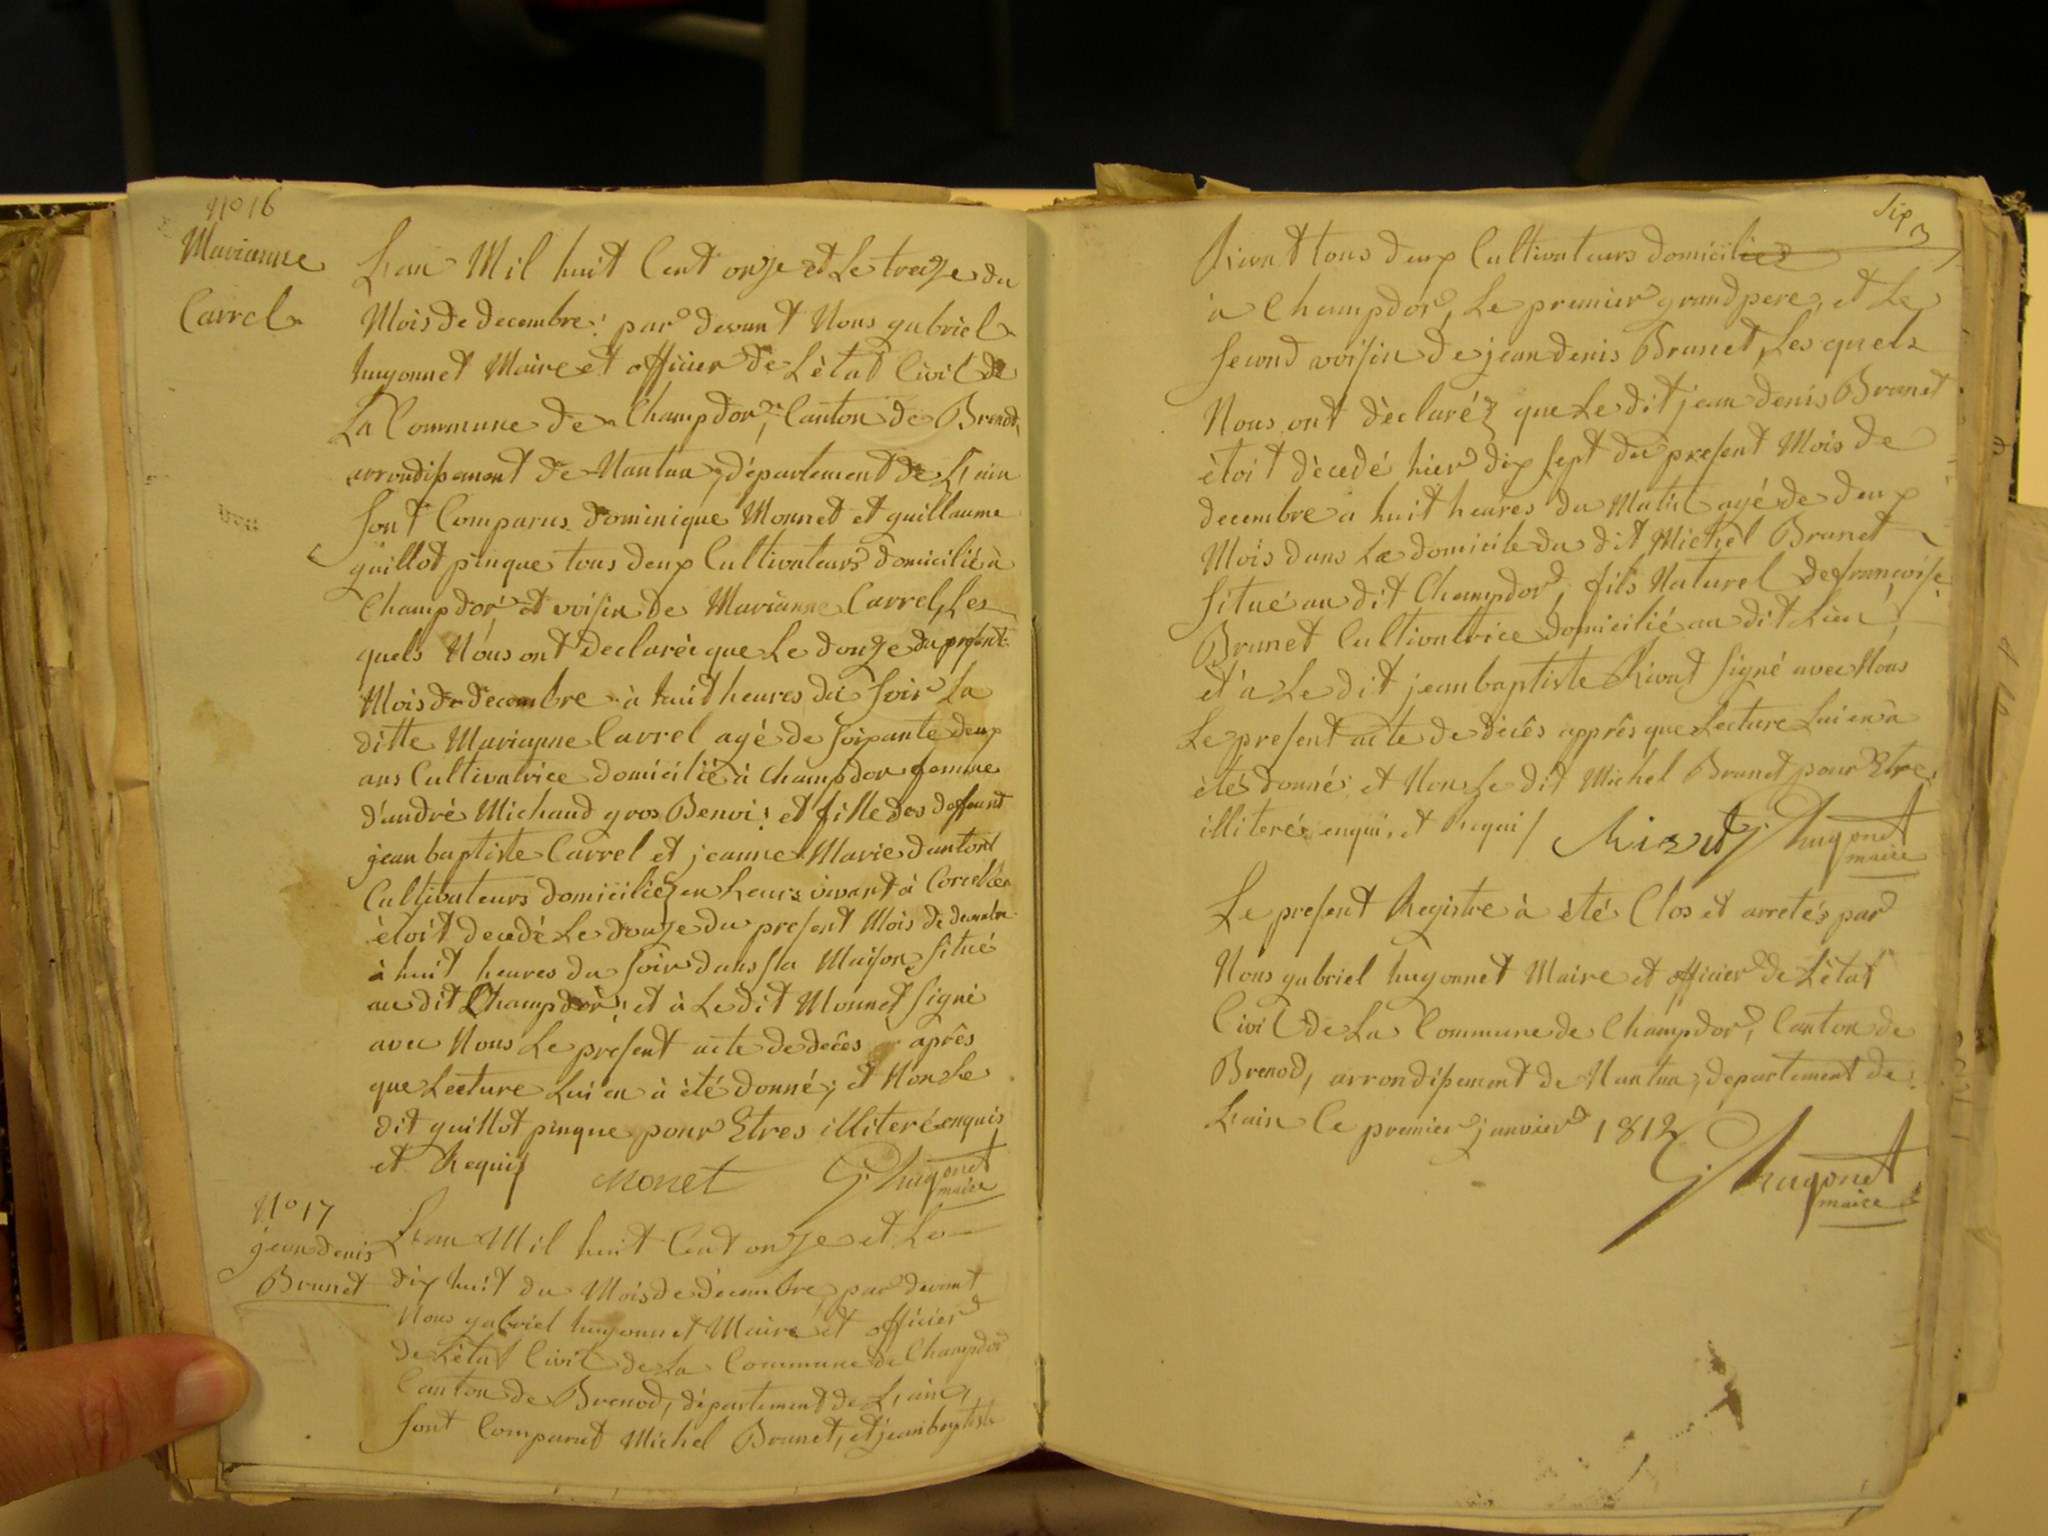 N° 16
Marianne
Carrel
L'an Mil huit Cent onze et Le treize du
Mois de decembre; par devant Nous gabriel
hugonnet Maire et officier de L'ètat Civil de
La Commune de Champdor, Canton de Brenod,
arrondissement de Nantua, département de L'ain
sont Comparus dominique Monnet et guillaume
guillot pinque tous deux Cultivateurs domicilié à
Champdor, et voisin de Marianne Carrel, Les
quels Nous ont declaréz que Le douze du présent
Mois de decembre à huit heures du soir La
ditte Marianne Carrel agé de soixante deux
ans Cultivatrice domicilié à Champdor femme
d'andré Michaud gros Benoi; et fille des deffunt
jean baptiste Carrel et jeanne Marie dantont
Cultivateurs domiciliéz en Leurs vivant à Corcelles
ètoit decedé Le douze du present Mois de decembre
à huit heures du soir dans sa Maison situé
au dit Champdor; et à Le dit Monnet signé
avec Nous Le présent acte de decès après
que Lecture Lui en à été donné; et Non Le
dit guillot pinque pour Etres illiteré enquis
et Requis Monet G. hugonet
maire
N° 17
jean denis
Brunet
L'an Mil huit Cent onze et Le
dix huit du Mois de décembre, par devant
Nous gabriel hugonnet Maire et officier
de L'ètat Civil de La Commune de Champdor
Canton de Brenod, département de L'ain,
sont Comparut Michel Brunet, et jean baptiste
six
3
Rivat tous deux Cultivateurs domiciliés
à Champdor, Le premier grand pere, et Le
second voisin de jean denis Brunet, Les quels
Nous ont dèclaréz que Le dit jean denis Brunet
ètoit dècedé hier dix sept du present Mois de
decembre a huit heures du Matin agé de deux
Mois dans Le domicile du dit Michel Brunet
situé au dit Champdor, fils Naturel de françoise
Brunet Cultivatrice domicilié au dit Lieu,
et à Le dit jean baptiste Rivat signé avec Nous
Le present acte de dècès apprês que Lecture Lui en à
étés donné; et Non Le dit Michel Brunet pour Etre
illiterés enquis et Requis Rivat G. hugonet
maire
Le present Registre à èté Clos et arretés par
Nous gabriel hugonnet Maire et officier de L'ètat
Civil de La Commune de Champdor, Canton de
Brenod, arrondissement de Nantua, departement de
L'ain Ce premier janvier 1812
G. hugonet
maire